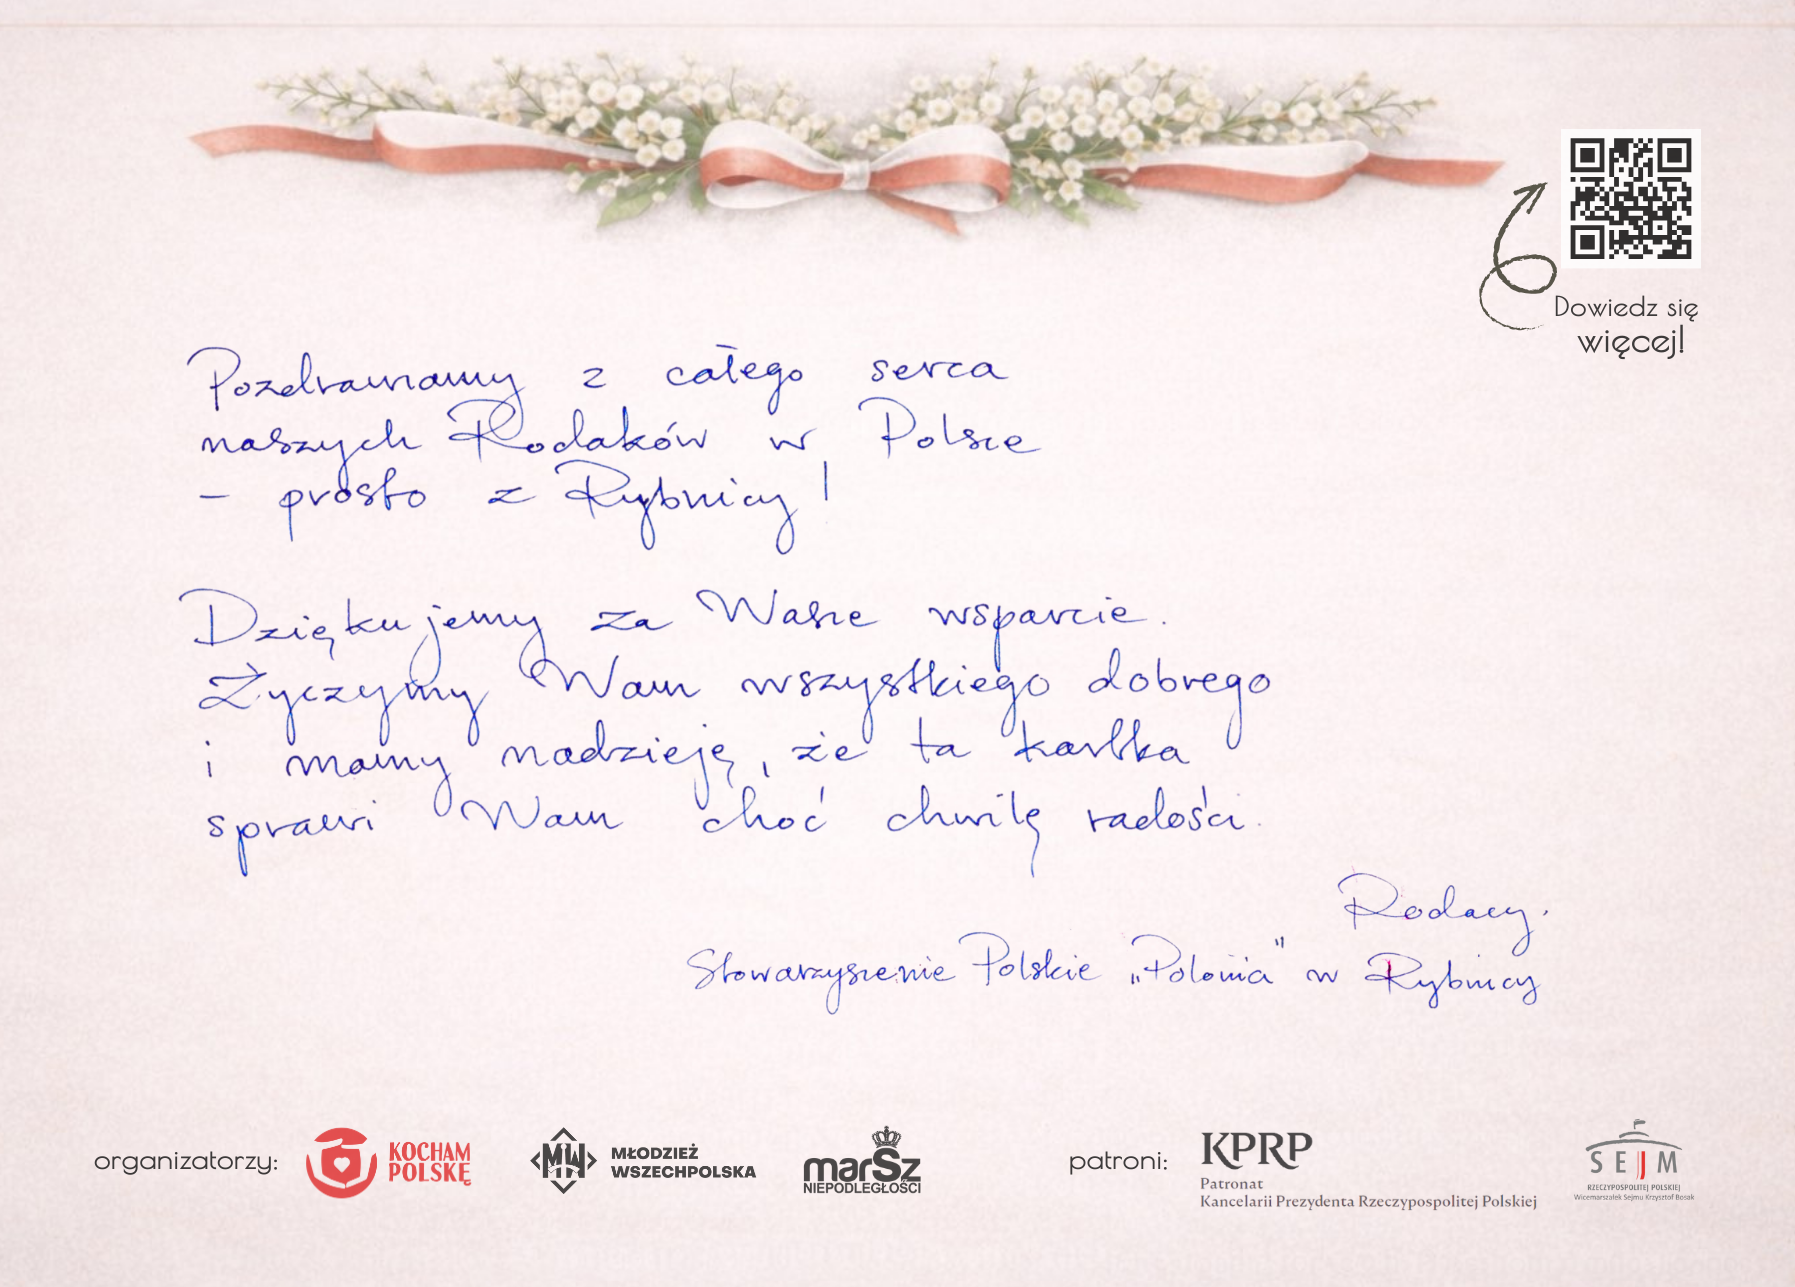 Dowiedz się
więcej!
Pozdrawiamy z całego serca
naszych Rodaków w Polsce
– prosto z Rybnicy!
Dziękujemy za Wasze wsparcie.
Życzymy Wam wszystkiego dobrego
i mamy nadzieję, że ta kartka
sprawi Wam choć chwilę radości.
Rodacy.
Stowarzyszenie Polskie „Polonia" w Rybnicy
organizatorzy:
KOCHAM
POLSKĘ
MW
MŁODZIEŻ
WSZECHPOLSKA
marSz
NIEPODLEGŁOŚCI
patroni:
KPRP
Patronat
Kancelarii Prezydenta Rzeczypospolitej Polskiej
SEJM
RZECZYPOSPOLITEJ POLSKIEJ
Wicemarszałek Sejmu Krzysztof Bosak